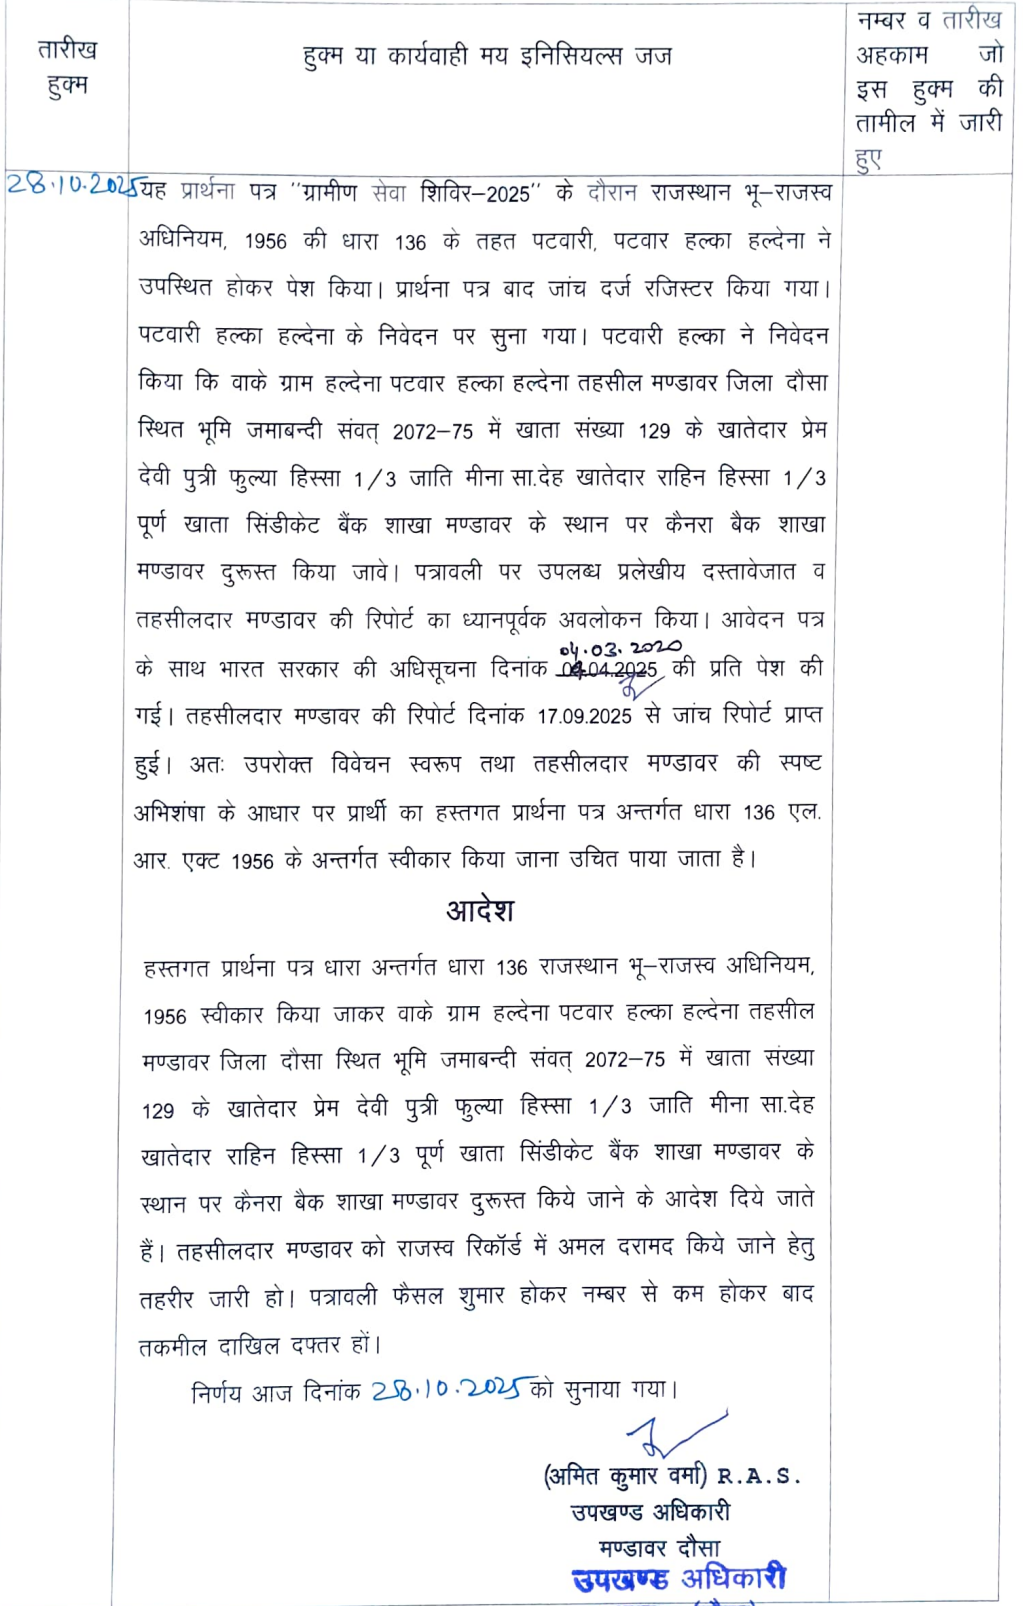 तारीख
हुक्म
हुक्म या कार्यवाही मय इनिसियल्स जज
नम्बर व तारीख
अहकाम जो
इस हुक्म की
तामील में जारी
हुए
28.10.2025
यह प्रार्थना पत्र ''ग्रामीण सेवा शिविर–2025'' के दौरान राजस्थान भू–राजस्व
अधिनियम, 1956 की धारा 136 के तहत पटवारी, पटवार हल्का हल्देना ने
उपस्थित होकर पेश किया। प्रार्थना पत्र बाद जांच दर्ज रजिस्टर किया गया।
पटवारी हल्का हल्देना के निवेदन पर सुना गया। पटवारी हल्का ने निवेदन
किया कि वाके ग्राम हल्देना पटवार हल्का हल्देना तहसील मण्डावर जिला दौसा
स्थित भूमि जमाबन्दी संवत् 2072–75 में खाता संख्या 129 के खातेदार प्रेम
देवी पुत्री फुल्या हिस्सा 1/3 जाति मीना सा.देह खातेदार राहिन हिस्सा 1/3
पूर्ण खाता सिंडीकेट बैंक शाखा मण्डावर के स्थान पर कैनरा बैक शाखा
मण्डावर दुरूस्त किया जावे। पत्रावली पर उपलब्ध प्रलेखीय दस्तावेजात व
तहसीलदार मण्डावर की रिपोर्ट का ध्यानपूर्वक अवलोकन किया। आवेदन पत्र
04.03.2020
के साथ भारत सरकार की अधिसूचना दिनांक 04.04.2025 की प्रति पेश की
गई। तहसीलदार मण्डावर की रिपोर्ट दिनांक 17.09.2025 से जांच रिपोर्ट प्राप्त
हुई। अतः उपरोक्त विवेचन स्वरूप तथा तहसीलदार मण्डावर की स्पष्ट
अभिशंषा के आधार पर प्रार्थी का हस्तगत प्रार्थना पत्र अन्तर्गत धारा 136 एल.
आर. एक्ट 1956 के अन्तर्गत स्वीकार किया जाना उचित पाया जाता है।
आदेश
हस्तगत प्रार्थना पत्र धारा अन्तर्गत धारा 136 राजस्थान भू–राजस्व अधिनियम,
1956 स्वीकार किया जाकर वाके ग्राम हल्देना पटवार हल्का हल्देना तहसील
मण्डावर जिला दौसा स्थित भूमि जमाबन्दी संवत् 2072–75 में खाता संख्या
129 के खातेदार प्रेम देवी पुत्री फुल्या हिस्सा 1/3 जाति मीना सा.देह
खातेदार राहिन हिस्सा 1/3 पूर्ण खाता सिंडीकेट बैंक शाखा मण्डावर के
स्थान पर कैनरा बैक शाखा मण्डावर दुरूस्त किये जाने के आदेश दिये जाते
हैं। तहसीलदार मण्डावर को राजस्व रिकॉर्ड में अमल दरामद किये जाने हेतु
तहरीर जारी हो। पत्रावली फैसल शुमार होकर नम्बर से कम होकर बाद
तकमील दाखिल दफ्तर हों।
निर्णय आज दिनांक 28.10.2025 को सुनाया गया।
(अमित कुमार वर्मा) R.A.S.
उपखण्ड अधिकारी
मण्डावर दौसा
उपखण्ड अधिकारी